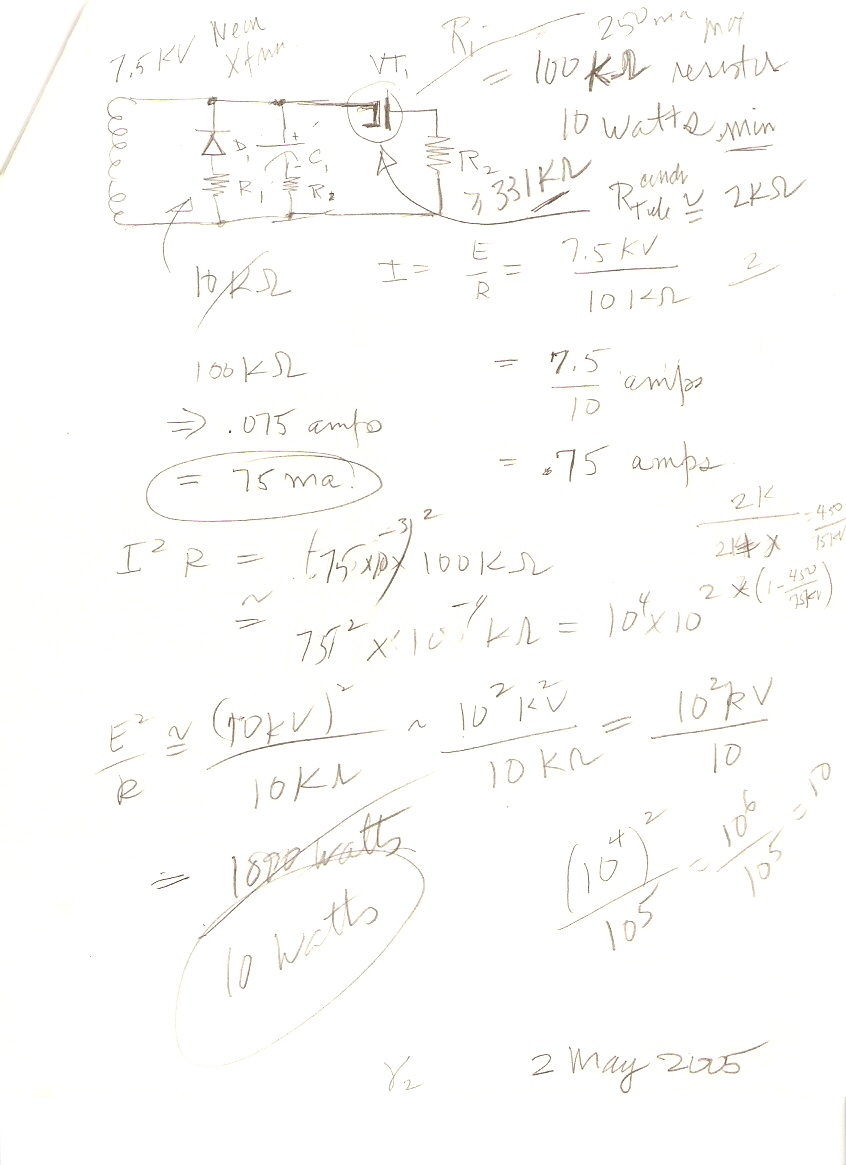 7.5KV Neon Xfmr
VT1
R1 250 ma max
= 100KΩ resistor
10 watts min
D1 C1
R1 R2
R2
≥ 331KΩ
R tube ≅ 2KΩ
10KΩ
I = E/R = 7.5 KV / 10KΩ
100KΩ = 7.5/10 amps
⇒ .075 amps
= 75 ma! = .75 amps
2K
I² R = (75x10⁻³)² x 100KΩ
≅ 75² x 10⁻⁴ KΩ = 10⁴x10²
E²/R ≅ (10KV)²/10KΩ ~ 10²KV²/10KΩ = 10²KV/10
= 1000 watts
10 watts
(10⁴)²/10⁵ = 10⁶/10⁵ = 10
2 May 2005